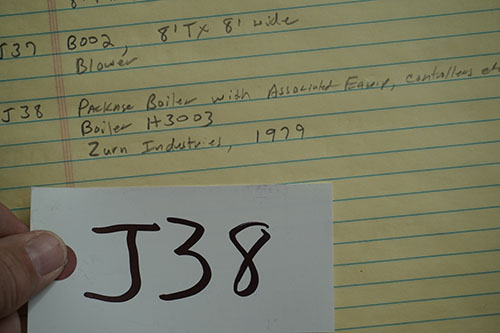 J37 B002, 8'T x 8' wide
Blower
J38 Package Boiler with Associated Equip, controllers etc
Boiler H3003
Zurn Industries, 1979
J38